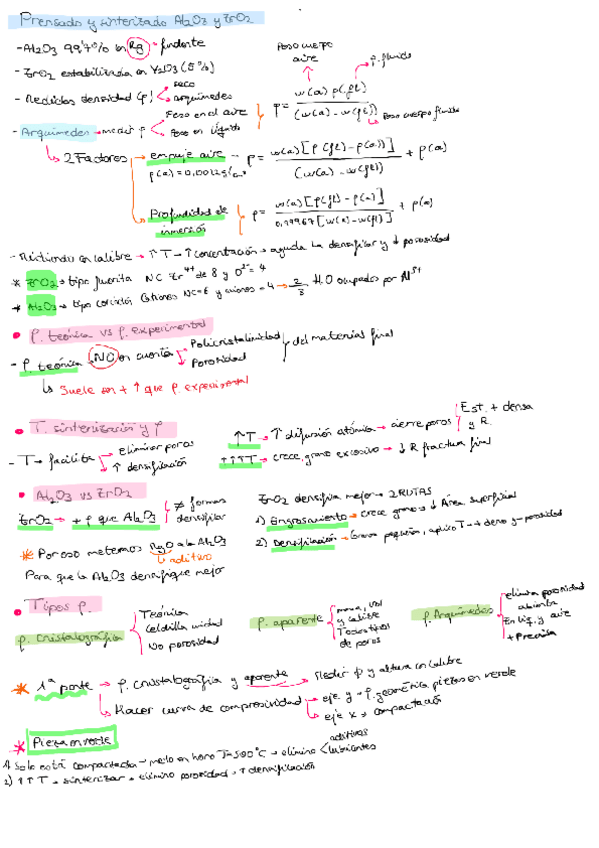 Prensado y sinterizado Al2O3 y ZrO2
- Al2O3 99,7% en Rg → fundente
- ZrO2 estabilizada en Y2O3 (5%)
- Medidas densidad (ρ) → seco
→ arquímedes
Peso cuerpo aire
ρ fluido
ρ = w(a) ρ(fl) / (w(a) - w(fl))
Peso cuerpo fluido
- Arquímedes → medir ρ → Peso en el aire
→ Peso en líquido
↳ 2 Factores → empuje aire - ρ = w(a)[ρ(fl) - ρ(a)] / (w(a) - w(fl)) + ρ(a)
ρ(a) = 0,0012 g/cm³
Profundidad de inmersión
ρ = w(a)[ρ(fl) - ρ(a)] / 0,99967[w(a) - w(fl)] + ρ(a)
- Midiendo en calibre → ↑T → ↑concentración → ayuda a densificar y ↓ porosidad
* ZrO2 → tipo fluorita NC Zr4+ de 8 y O2- = 4
* Al2O3 → tipo corindón Cationes NC=6 y aniones = 4 → 2/3 H.O ocupados por Al3+
• ρ. teórica vs ρ. experimental
- ρ. teórica → NO en cuenta → Policristalinidad
→ Porosidad
del material final
↳ Suele ser + ↑ que ρ. experimental
• T. sinterización y ρ
- T → facilita → eliminar poros
→ ↑ densificación
↑T → ↑ difusión atómica → cierre poros Est. + densa y R
↑↑↑T → crece grano excesivo → ↓ R fractura final
• Al2O3 vs ZrO2
ZrO2 → + ρ que Al2O3 ≠ formas densificar
* Por eso metemos RgO a la Al2O3
↳ aditivo
Para que la Al2O3 densifique mejor
ZrO2 densifica mejor → 2 RUTAS
1) Engrosamiento → crece grano → ↓ Área superficial
2) Densificación → Grano pequeño, aplico T → + denso y - porosidad
• Tipos ρ.
ρ. cristalográfica
Teórica
Celdilla unidad
No porosidad
ρ. aparente
masa, vol y calibre
Todos tipos de poros
ρ. Arquímedes
elimina porosidad abierta
En líq. y aire
+ Precisa
* 1ª parte → ρ. cristalográfica y aparente → Medir ϕ y altura en calibre
↳ Hacer curva de compresividad → eje y → ρ. geométrica piezas en verde
→ eje x → compactació
* Pieza en verde
1) Solo está compactada → meto en horno T=500°C → elimino aditivos
lubricantes
2) ↑↑T → sinterizar → elimino porosidad → ↑ densificación